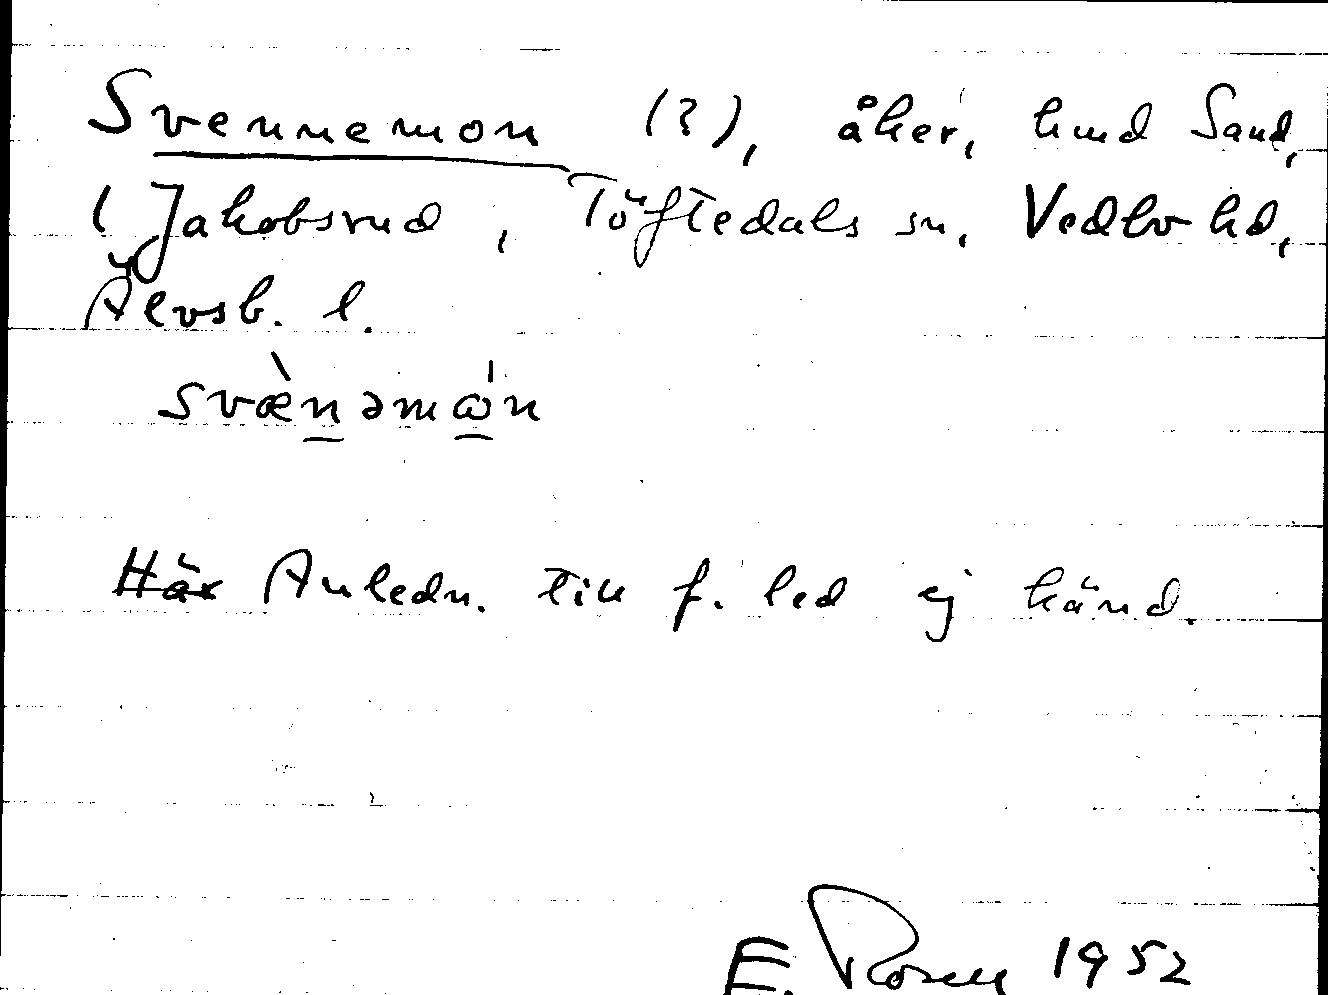 Svennemon (?), åker, hmd Sand,
( Jakobsrud, Töftedals sn, Vedbo hd,
Älvsb. l.
svæ̀nəmɷ́n
Här Anledn. till f. led ej känd.
E. Rosell 1952